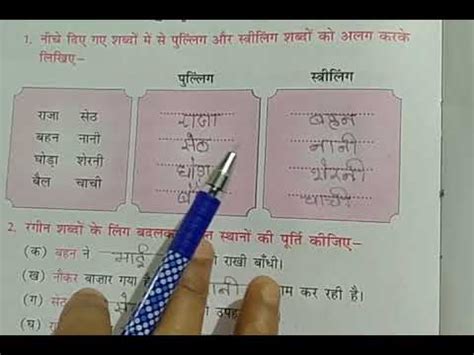 1. नीचे दिए गए शब्दों में से पुल्लिंग और स्त्रीलिंग शब्दों को अलग करके
लिखिए–
पुल्लिंग स्त्रीलिंग
राजा सेठ राजा बहन
बहन नानी सेठ नानी
घोड़ा शेरनी घोड़ा शेरनी
बैल चाची चाची
2. रंगीन शब्दों के लिंग बदलकर स्थानों की पूर्ति कीजिए–
(क) बहन ने भाई राखी बाँधी।
(ख) नौकर बाज़ार गया है कर रही है।
(ग) सेठ
(घ)